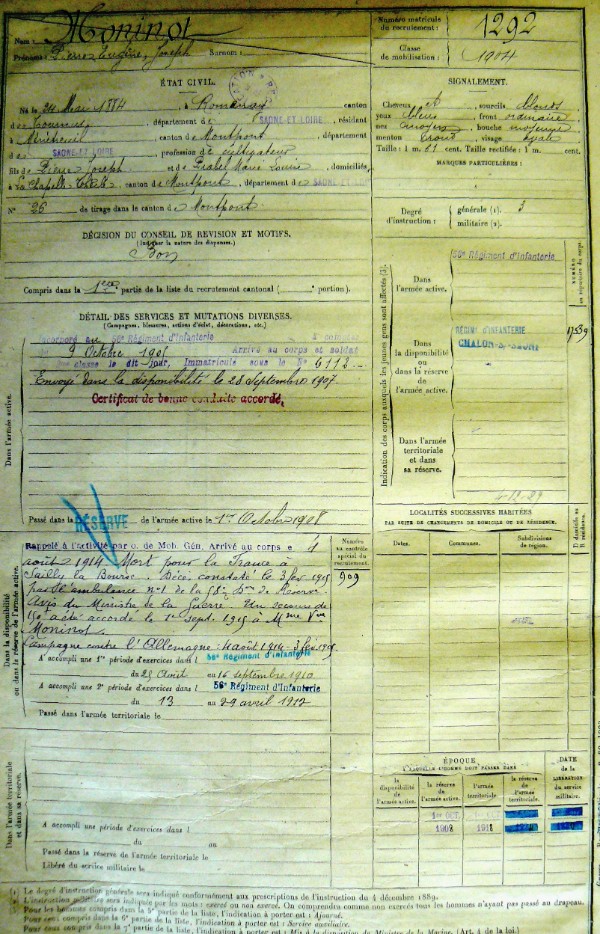 Nom : Moninot
Prénoms : Pierre Eugène Joseph Surnom :
Numéro matricule du recrutement : 1292
Classe de mobilisation : 1904
ÉTAT CIVIL.
Né le 24 Mai 1884, à Romenay, canton
de Tournus, département de SAONE-ET-LOIRE, résidant
à Ménetreuil, canton de Montpont, département
de SAONE-ET-LOIRE, profession de cultivateur
fils de Pierre Joseph et de Marie Louise, domiciliés
à La Chapelle canton de Montpont, département de SAONE-ET-LOIRE
N° 26 de tirage dans le canton de Montpont
SIGNALEMENT.
Cheveux et sourcils blonds
yeux bleus front ordinaire
nez moyen bouche moyenne
menton rond visage ovale
Taille : 1 m. 61 cent. Taille rectifiée : 1 m. cent.
MARQUES PARTICULIÈRES :
Degré d'instruction : générale (1). 3
militaire (2).
DÉCISION DU CONSEIL DE REVISION ET MOTIFS.
(Indiquer la nature des dispenses.)
Bon
Compris dans la 1ère partie de la liste du recrutement cantonal ( portion).
DÉTAIL DES SERVICES ET MUTATIONS DIVERSES.
(Campagnes, blessures, actions d'éclat, décorations, etc.)
Dans l'armée active.
Incorporé au 56e Régiment d'Infanterie à compter
du 9 Octobre 1905 Arrivé au corps et soldat
classe le dit jour, Immatriculé sous le N° 6113
Envoyé dans la disponibilité le 28 septembre 1907.
Certificat de bonne conduite accordé.
Passé dans la RÉSERVE de l'armée active le 1er Octobre 1908
Indication des corps auxquels les jeunes gens sont affectés (3).
Dans l'armée active.
56e Régiment d'Infanterie
Dans la disponibilité ou dans la réserve de l'armée active.
RÉGIMENT D'INFANTERIE
CHALON-S-SAONE
Dans l'armée territoriale et dans sa réserve.
Dans la disponibilité ou dans la réserve de l'armée active.
Rappelé à l'activité par o. de Mob. Gén. Arrivé au corps le 4
août 1914. Mort pour la France à
Sailly la Bourse. Décès constaté le 3 fév 1915
par l'ambulance n° 1 de la 58e Don de Réserve
Avis du Ministre de la Guerre. Un secours de
150 a été accordé le 1er Sept. 1915 à Mme Vve
Moninot
Campagne contre l'Allemagne : 4 août 1914 - 3 fév 1915
Numéro au contrôle spécial du recrutement.
909
A accompli une 1re période d'exercices dans l 56e Régiment d'Infanterie
du 25 Août au 16 septembre 1910
A accompli une 2e période d'exercices dans l 56e Régiment d'Infanterie
du 13 au 29 avril 1912
Passé dans l'armée territoriale le
LOCALITÉS SUCCESSIVES HABITÉES
PAR SUITE DE CHANGEMENTS DE DOMICILE OU DE RÉSIDENCE.
Dates. Communes. Subdivisions de région. D domicile ou R résidence.
Dans l'armée territoriale et dans sa réserve.
A accompli une période d'exercices dans l
du au
Passé dans la réserve de l'armée territoriale le
Libéré du service militaire le
ÉPOQUE
À LAQUELLE L'HOMME DOIT PASSER DANS
DATE de la LIBÉRATION du service militaire.
la disponibilité de l'armée active. la réserve de l'armée active. l'armée territoriale. la réserve de l'armée territoriale.
1er OCT.
1908 1918
(1) Le degré d'instruction générale sera indiqué conformément aux prescriptions de l'instruction du 4 décembre 1889.
(2) L'instruction militaire sera indiquée par les mots : exercé ou non exercé. On comprendra comme non exercés tous les hommes n'ayant pas passé au drapeau.
(3) Pour les hommes compris dans la 5e partie de la liste, l'indication à porter est : Ajourné.
Pour ceux compris dans la 6e partie de la liste, l'indication à porter est : Service auxiliaire.
Pour ceux compris dans la 7e partie de la liste, l'indication à porter est : Mis à la disposition du Ministre de la Marine (Art. 4 de la loi.)